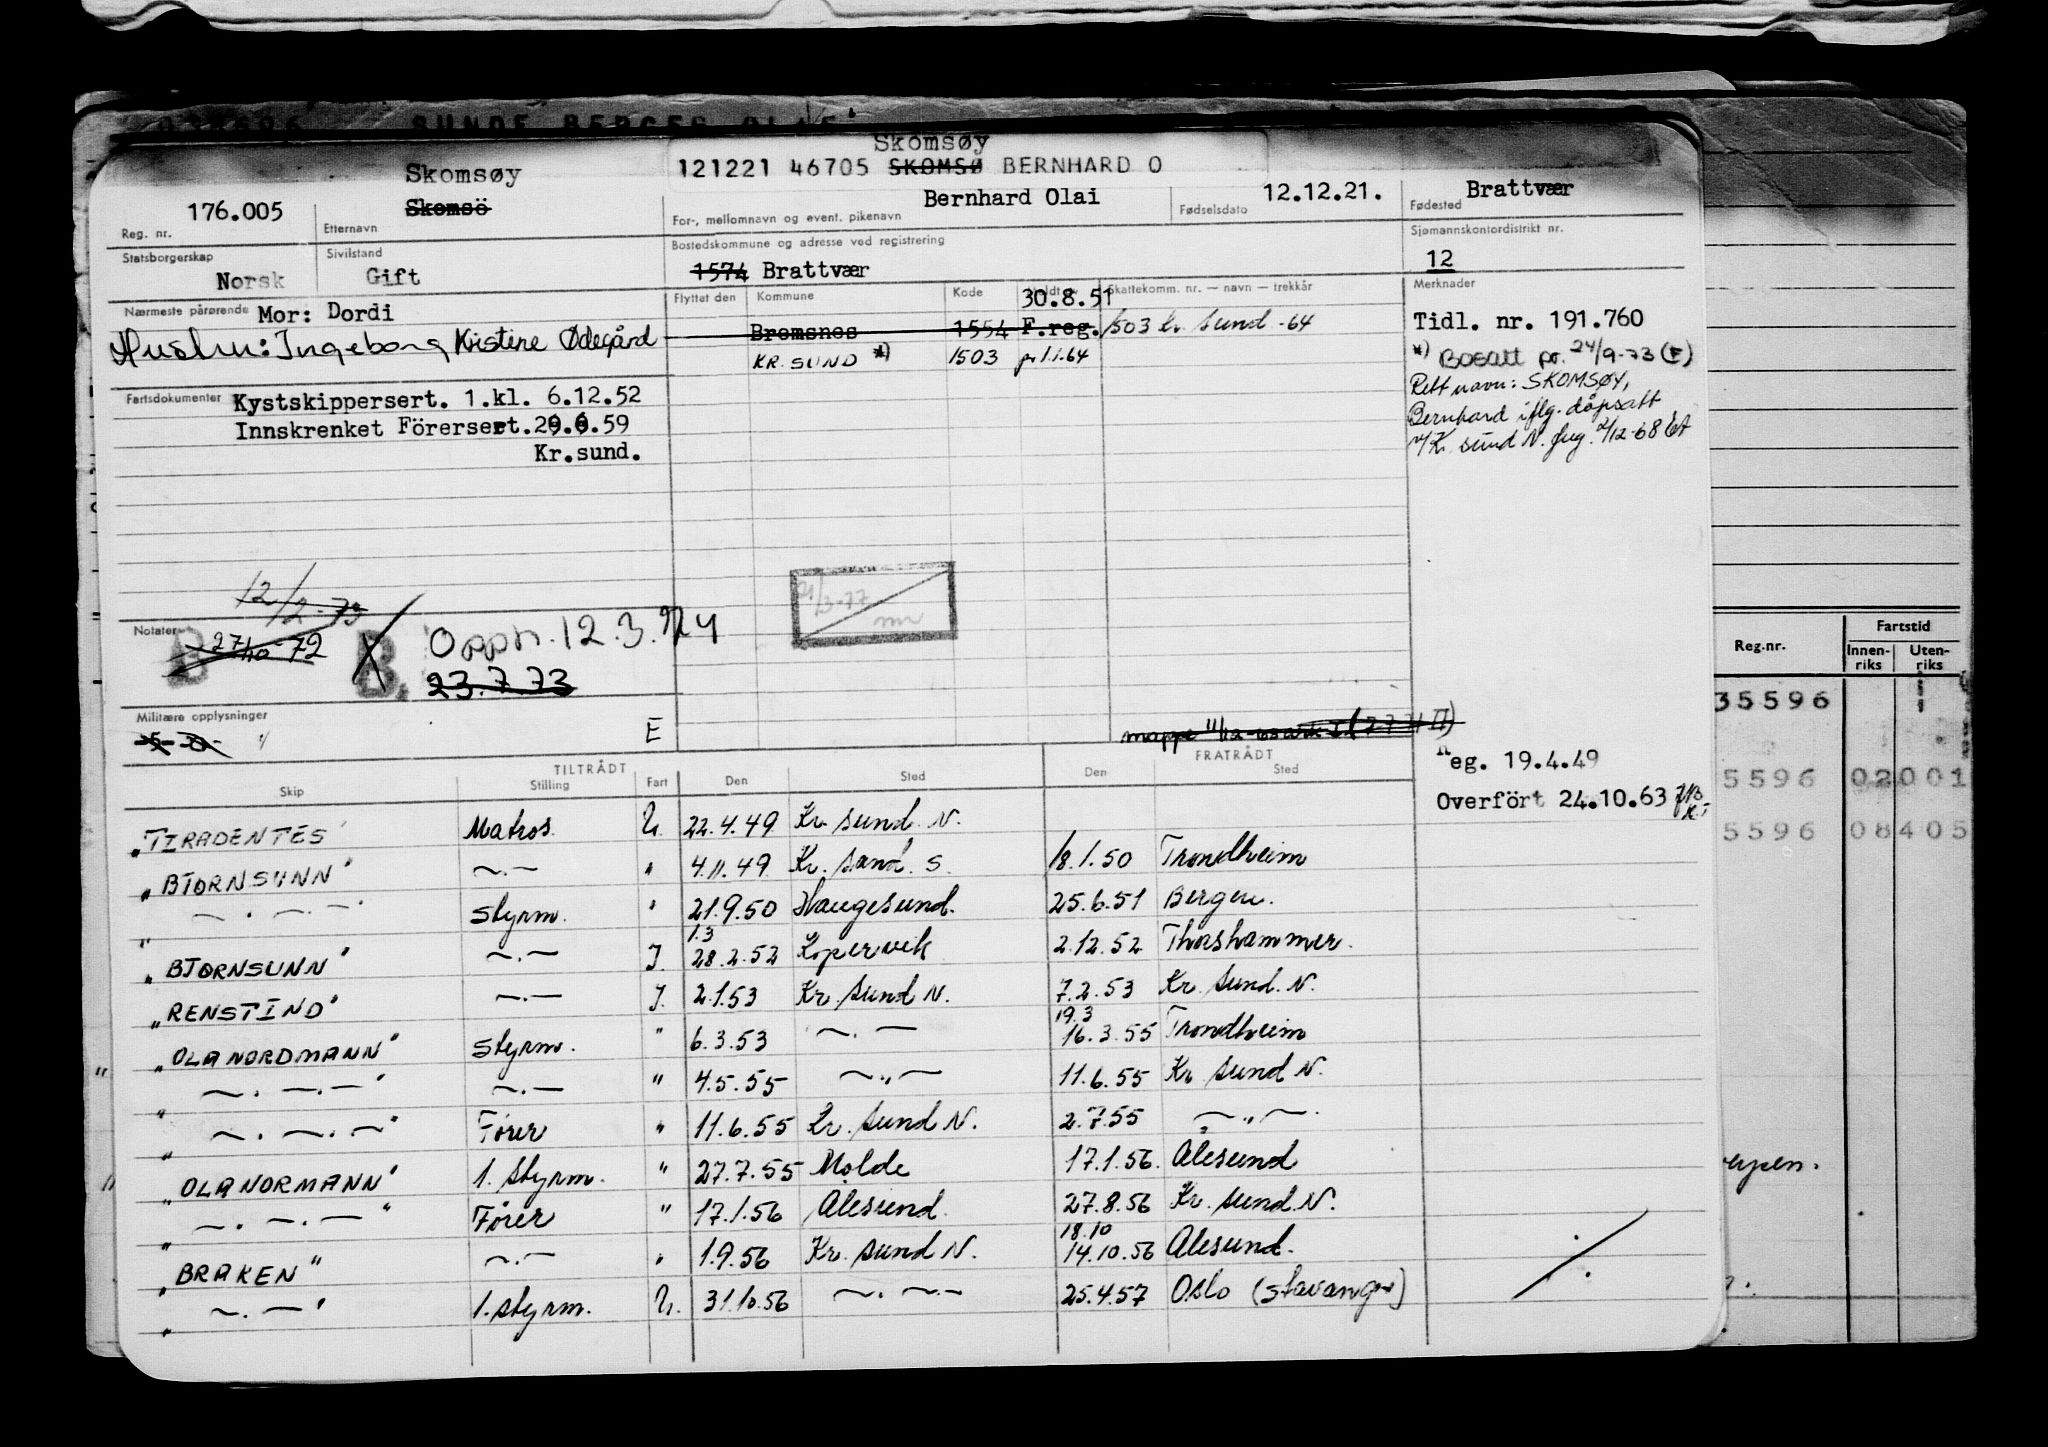 Skomsøy
121221 46705 SKOMSØ BERNHARD O
Skomsøy
176.005 Skomsö Bernhard Olai 12.12.21. Brattvær
Reg. nr. Etternavn For-, mellomnavn og event. pikenavn Fødselsdato Fødested
Statsborgerskap Sivilstand Bostedskommune og adresse ved registrering Sjømannskontordistrikt nr.
Norsk Gift 1574 Brattvær 12
Nærmeste pårørende Mor: Dordi
Hustru: Ingeborg Kristine Ødegård
Flyttet den Kommune Kode Skattekomm. nr. — navn — trekkår
30.8.51
Bremsnes 1554 F.reg. 1503 Kr. sund -64
KR. SUND *) 1503 pr 1.1.64
Merknader
Tidl. nr. 191.760
*) Bosatt pr. 24/9-73 (F)
Rett navn: SKOMSØY,
Bernhard iflg. dåpsatt
Fartsdokumenter Kystskippersert. 1.kl. 6.12.52
Innskrenket Förersert. 29.6.59
Kr.sund.
12/2-73
Notater
27/10 72
B B.
Oppn. 12.3.74
23.7.73
21/3-77
Militære opplysninger
E
Reg. 19.4.49
Overfört 24.10.63
TILTRÅDT FRATRÅDT
Skip Stilling Fart Den Sted Den Sted
"TIRADENTES" Matros U. 22.4.49 Kr. sund. N.
"BJØRNSUNN" —.— " 4.11.49 Kr. sand. S. 18.1.50 Trondheim
" —.—.— " Styrm. " 21.9.50 Haugesund. 25.6.51 Bergen.
1.3
"BJØRNSUNN" —.— I. 28.2.52 Kopervik 2.12.52 Thorshammer.
"RENSTIND" —.— I. 2.1.53 Kr. sund N. 7.2.53 Kr. sund. N.
19.3
"OLA NORDMANN" Styrm. " 6.3.53 —.— 16.3.55 Trondheim
" —.—.— " —.— " 4.5.55 —„— 11.6.55 Kr. sund N.
" —.—.— " Fører " 11.6.55 Kr. sund N. 2.7.55 —„—.
"OLA NORMANN" 1. styrm. " 27.7.55 Molde 17.1.56. Ålesund
" —.—.— " Fører " 17.1.56 Ålesund. 27.8.56 Kr. sund. N.
18.10
"BRAKEN" —.— " 1.9.56 Kr. sund N. 14.10.56 Ålesund.
" —.— " 1. styrm. U. 31.10.56 —.—.— 25.4.57 Oslo (Stavanger)
Reg.nr. Fartstid
Innen-riks Uten-riks
35596
5596 02001
5596 08405